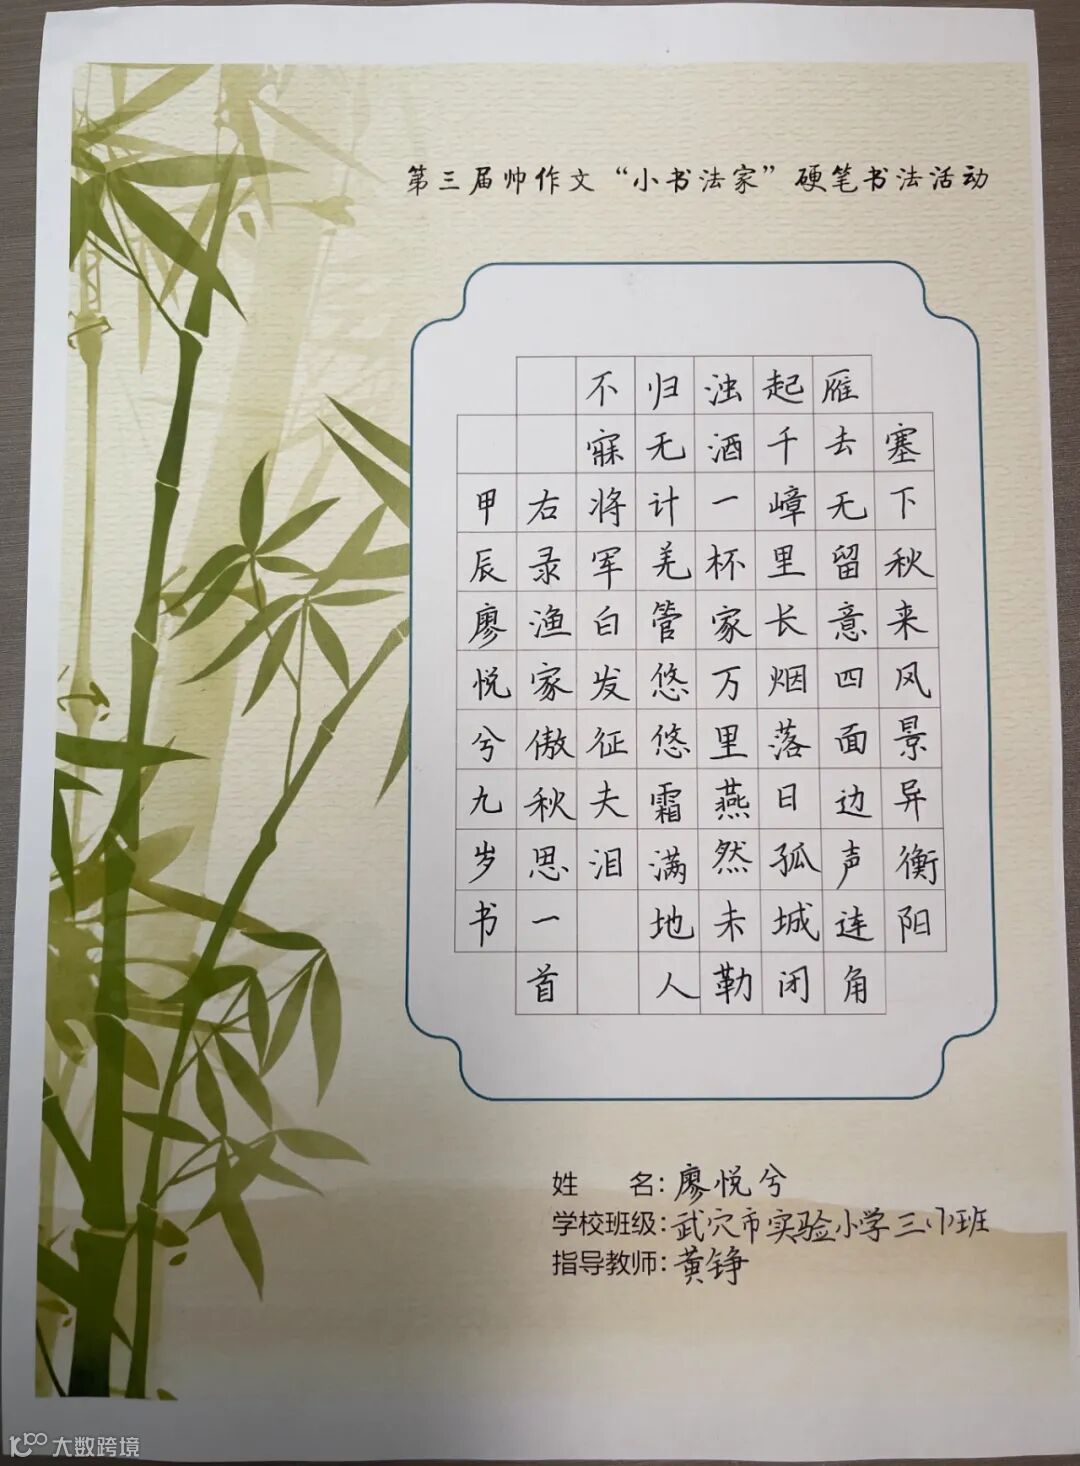 第三届帅作文“小书法家”硬笔书法活动
塞下秋来风景异衡阳
雁去无留意四面边声连角
起千嶂里长烟落日孤城闭
浊酒一杯家万里燕然未勒
归无计羌管悠悠霜满地人
不寐将军白发征夫泪
右录渔家傲秋思一首
甲辰廖悦兮九岁书
姓 名：廖悦兮
学校班级：武穴市实验小学三(1)班
指导教师：黄铮
大数跨境